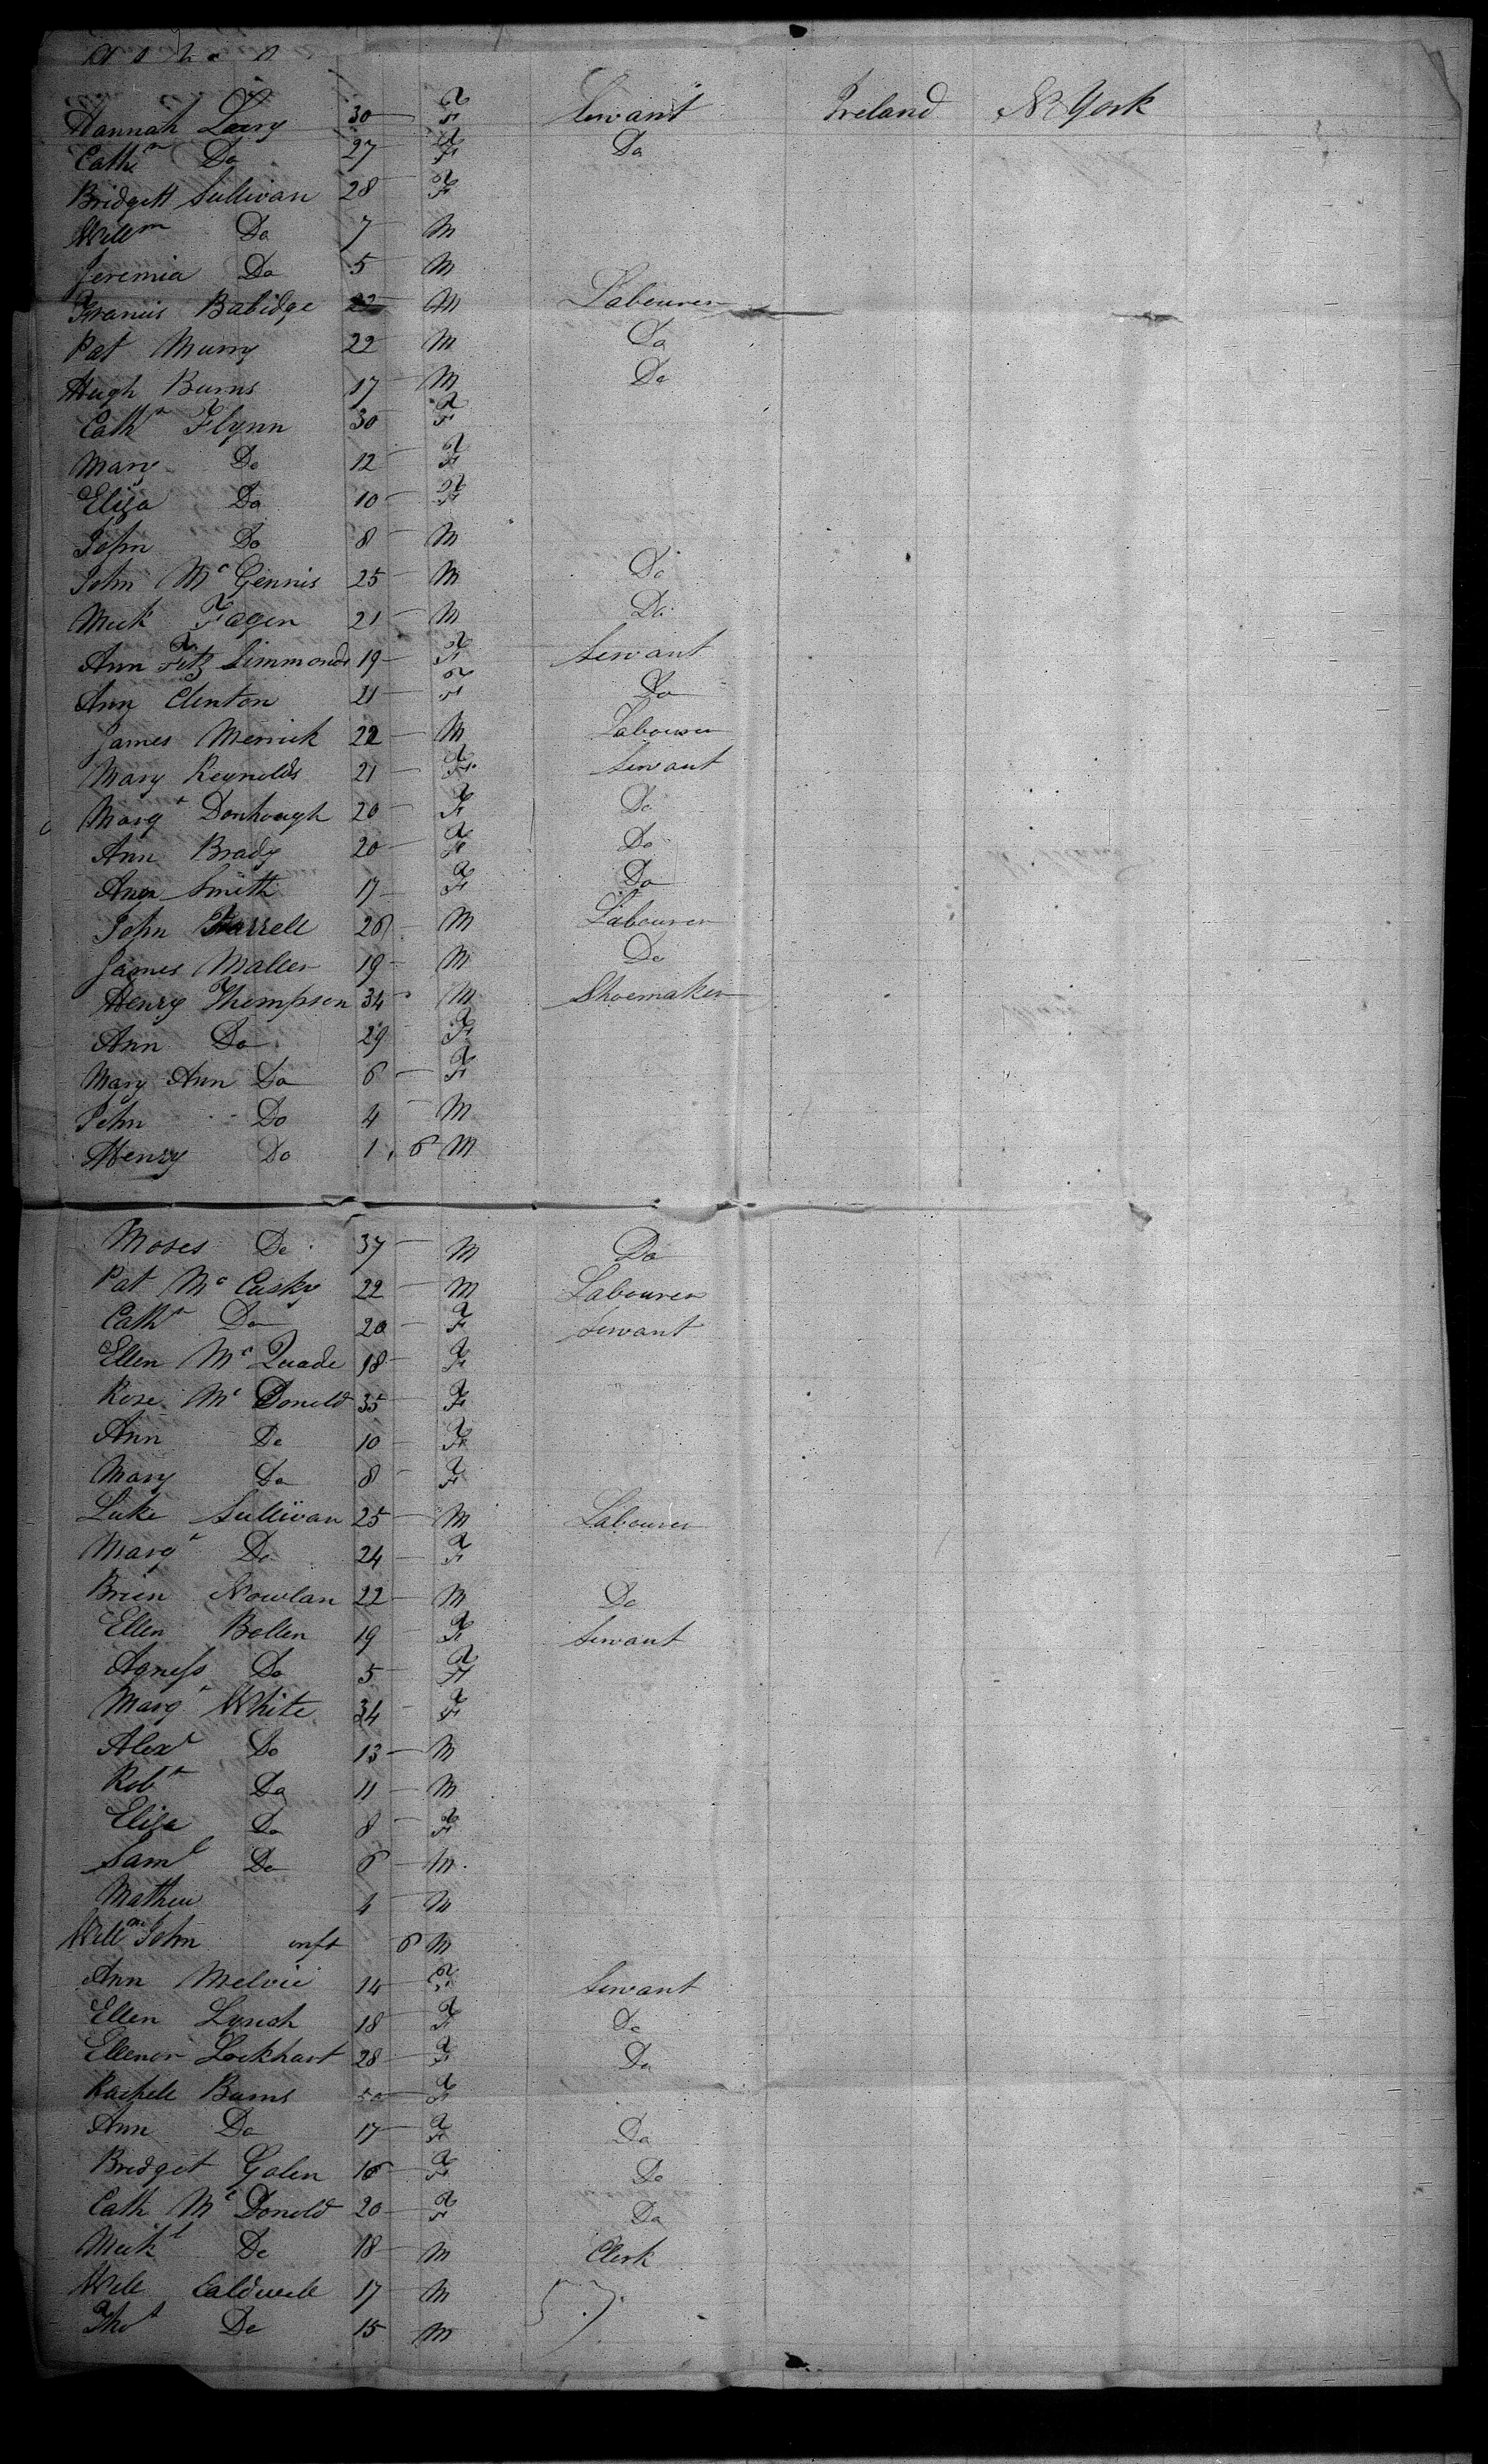 Hannah Lavy 30 F Servant Ireland N York
Cathn Do 27 F Do
Bridgett Sullivan 28 F
Willm Do 7 M
Jeremia Do 5 M
Francis Babidge M Labourer
Pat Murry 22 M Do
Hugh Burns 17 M Do
Cathn Flynn 30 F
Mary Do 12 F
Eliza Do 10 F
John Do 8 M
John Mc Gennis 25 M Do
Mick Fagen 21 M Do
Ann Fitz Simmonds 19 F Servant
Ann Clenton 21 F Do
James Merrick 22 M Labourer
Mary Reynolds 21 F Servant
Margt Donhough 20 F Do
Ann Brady 20 F Do
Ann Smith 17 F Do
John Farrell 26 M Labourer
James Maller 19 M Do
Henry Thompson 34 M Shoemaker
Ann Do 29 F
Mary Ann Do 6 F
John Do 4 M
Henry Do 1, 6 M
Moses Do 37 M Do
Pat Mc Cusky 22 M Labourer
Cathn Do 20 F Servant
Ellen Mc Quade 18 F
Rose Mc Donold 35 F
Ann Do 10 F
Mary Do 8 F
Luke Sullivan 25 M Labourer
Margt Do 24 F
Brien Nowlan 22 M Do
Ellen Bollen 19 F Servant
Agness Do 5 F
Margt White 34 F
Alexr Do 13 M
Robt Do 11 M
Eliza Do 8 F
Saml Do 6 M
Mathew 4 M
Willm John inft 6 M
Ann Melvie 14 F Servant
Ellen Lynch 18 F Do
Ellenor Lockhart 28 F Do
Rachell Burns 50 F
Ann Do 17 F Do
Bridget Galen 16 F Do
Cath Mc Donold 20 F Do
Mickl Do 18 M Clerk
Will Caldwell 17 M 57.
Thos Do 15 M